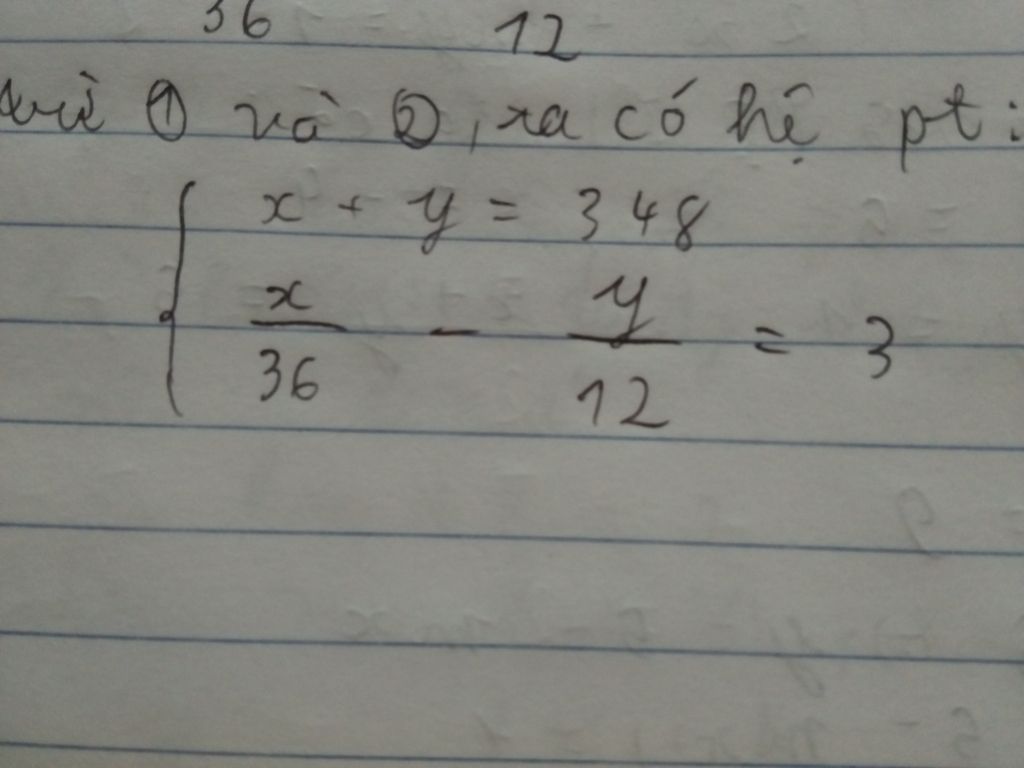 36 12
từ ① và ②, ta có hệ pt:
x + y = 348
x/36 - y/12 = 3